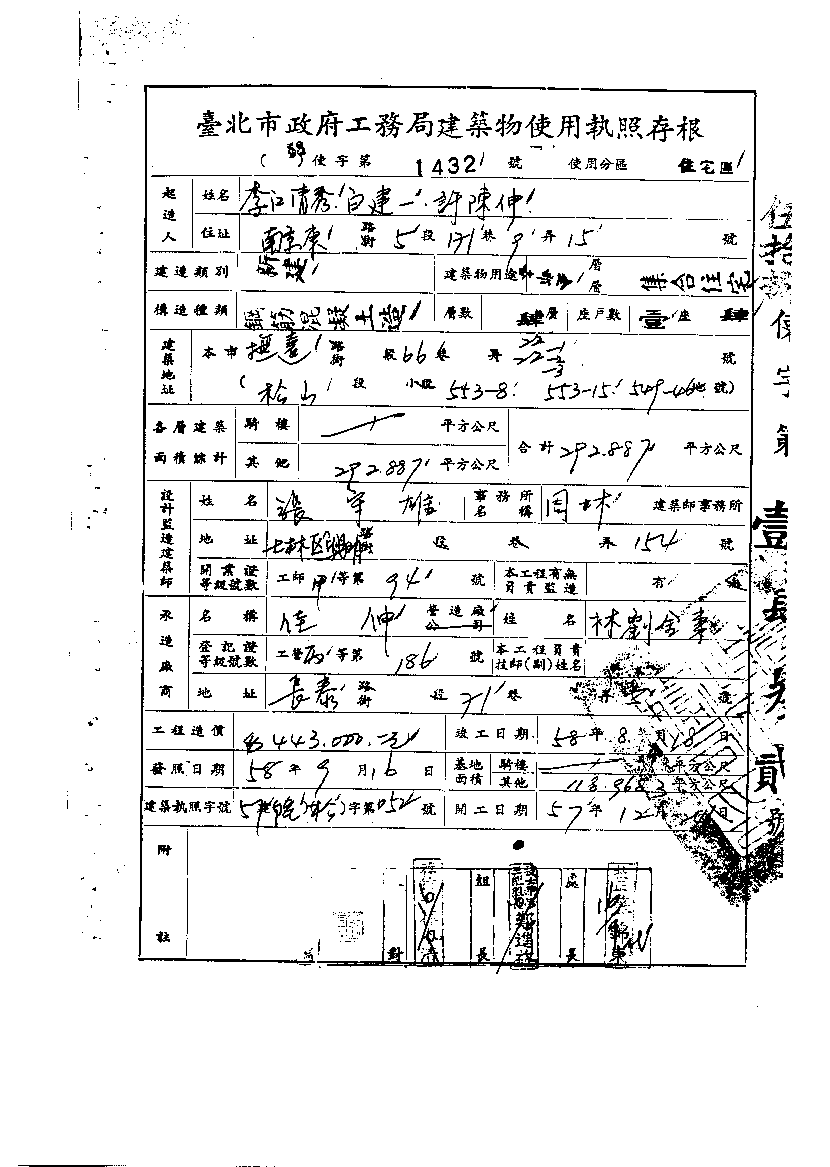 臺北市政府工務局建築物使用執照存根
( 使字第 1432 號 使用分區 住宅區
起造人 姓名 李江清秀 白建一 許陳伸
住址 南京東 路街 5 段 171 巷 9 弄 15 號
建造類別 新建 建築物用途 層 層 集合住宅
構造種類 鋼筋混凝土造 層數 肆 層 座戶數 壹 座 肆
建築地址 本市 撫遠 路街 段 66 巷 弄 22 22-1 -3 號
( 松山 段 小段 553-8 553-15 549-46 地號 )
各層建築面積總計 騎樓 平方公尺 合計 292.887 平方公尺
其他 292.887 平方公尺
設計監造建築師 姓名 張 宇 雄 事務所名稱 周林 建築師事務所
地址 士林區 路街 段 巷 弄 154 號
開業證等級號數 工師 甲 等第 94 號 本工程有無負責監造 有
承造廠商 名稱 佳伸 營造廠公司 姓名 林劉金東
登記證等級號數 工營 丙 等第 186 號 本工程負責技師(副)姓名
地址 長泰 路街 段 71 巷 弄 號
工程造價 443,000.元 竣工日期 58 年 8 月 18 日
發照日期 58 年 9 月 16 日 基地面積 騎樓 平方公尺
其他 118.9683 平方公尺
建築執照字號 字第 052 號 開工日期 57 年 12 月 日
附註
對 組長 處長
伍拾 使字第 壹 貳 號